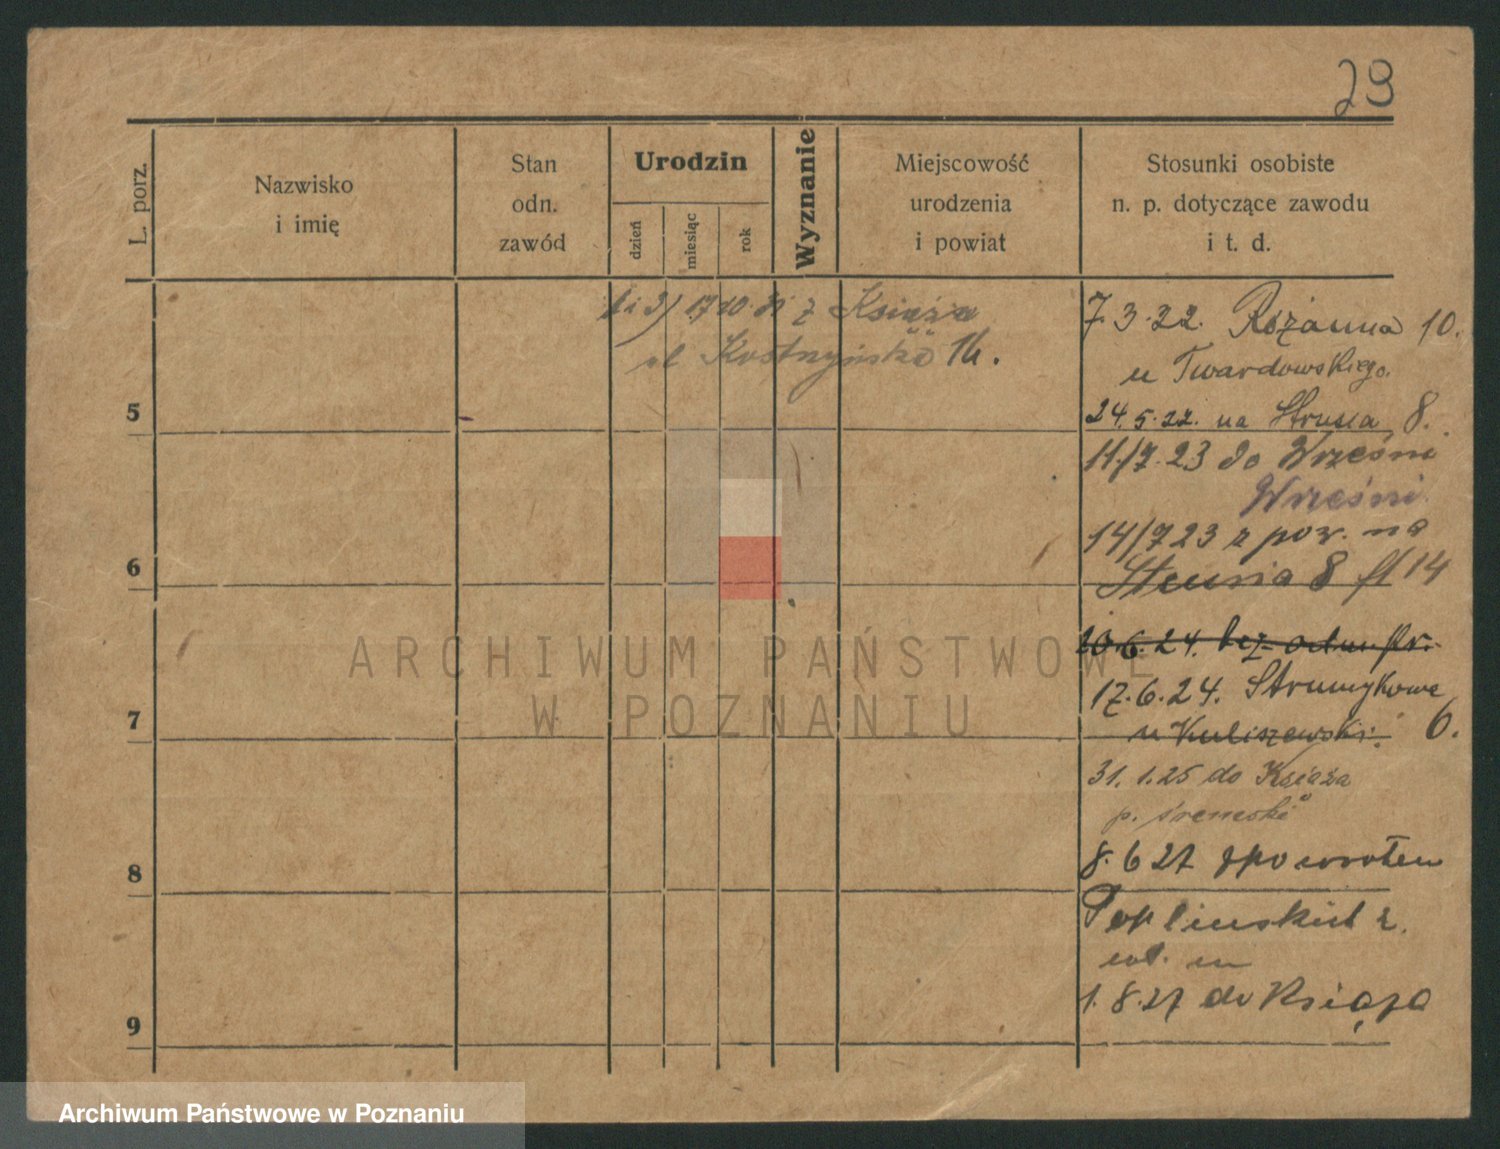 29
L. porz.
Nazwisko
i imię
Stan
odn.
zawód
Urodzin
dzień
miesiąc
rok
Wyznanie
Miejscowość
urodzenia
i powiat
Stosunki osobiste
n. p. dotyczące zawodu
i t. d.
3) 17 10. z Książa
ul Kostrzyńska 16.
7.3.22. Różanna 10.
u Twardowskiego.
5
24.5.22. na Strusia 8.
11/7.23 do Wrześni
Wrześni
14/7 23 z pow. na
6
Strusia 8 14
20.6.24. bez odm.
17.6.24. Strumykowa
7
u Kuliszewski. 6.
31.1.25 do Książa
p. śremski
8
8.6 27 z powrotem
z.
wł. m
9
1.8.27 do Książa
ARCHIWUM PAŃSTWOWE
W POZNANIU
Archiwum Państwowe w Poznaniu